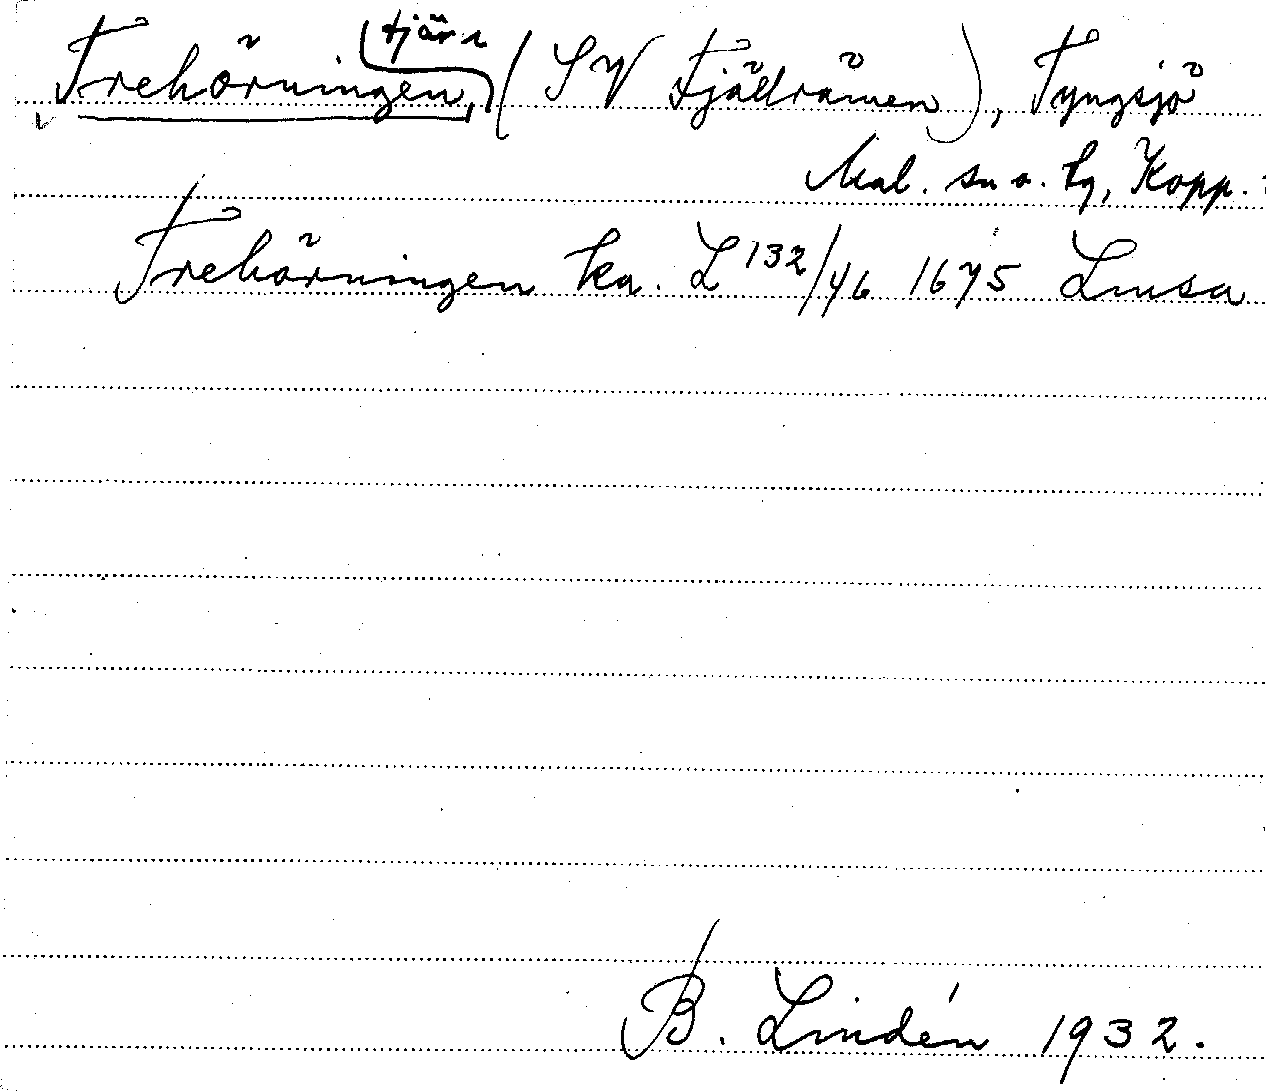 Trehörningen, tjärn (SV Fjällrämen), Tyngsjö
Mal. sn o. tg, Kopp.
Trehörningen ka. L 132/46 1675 Limsa
B. Lindén 1932.